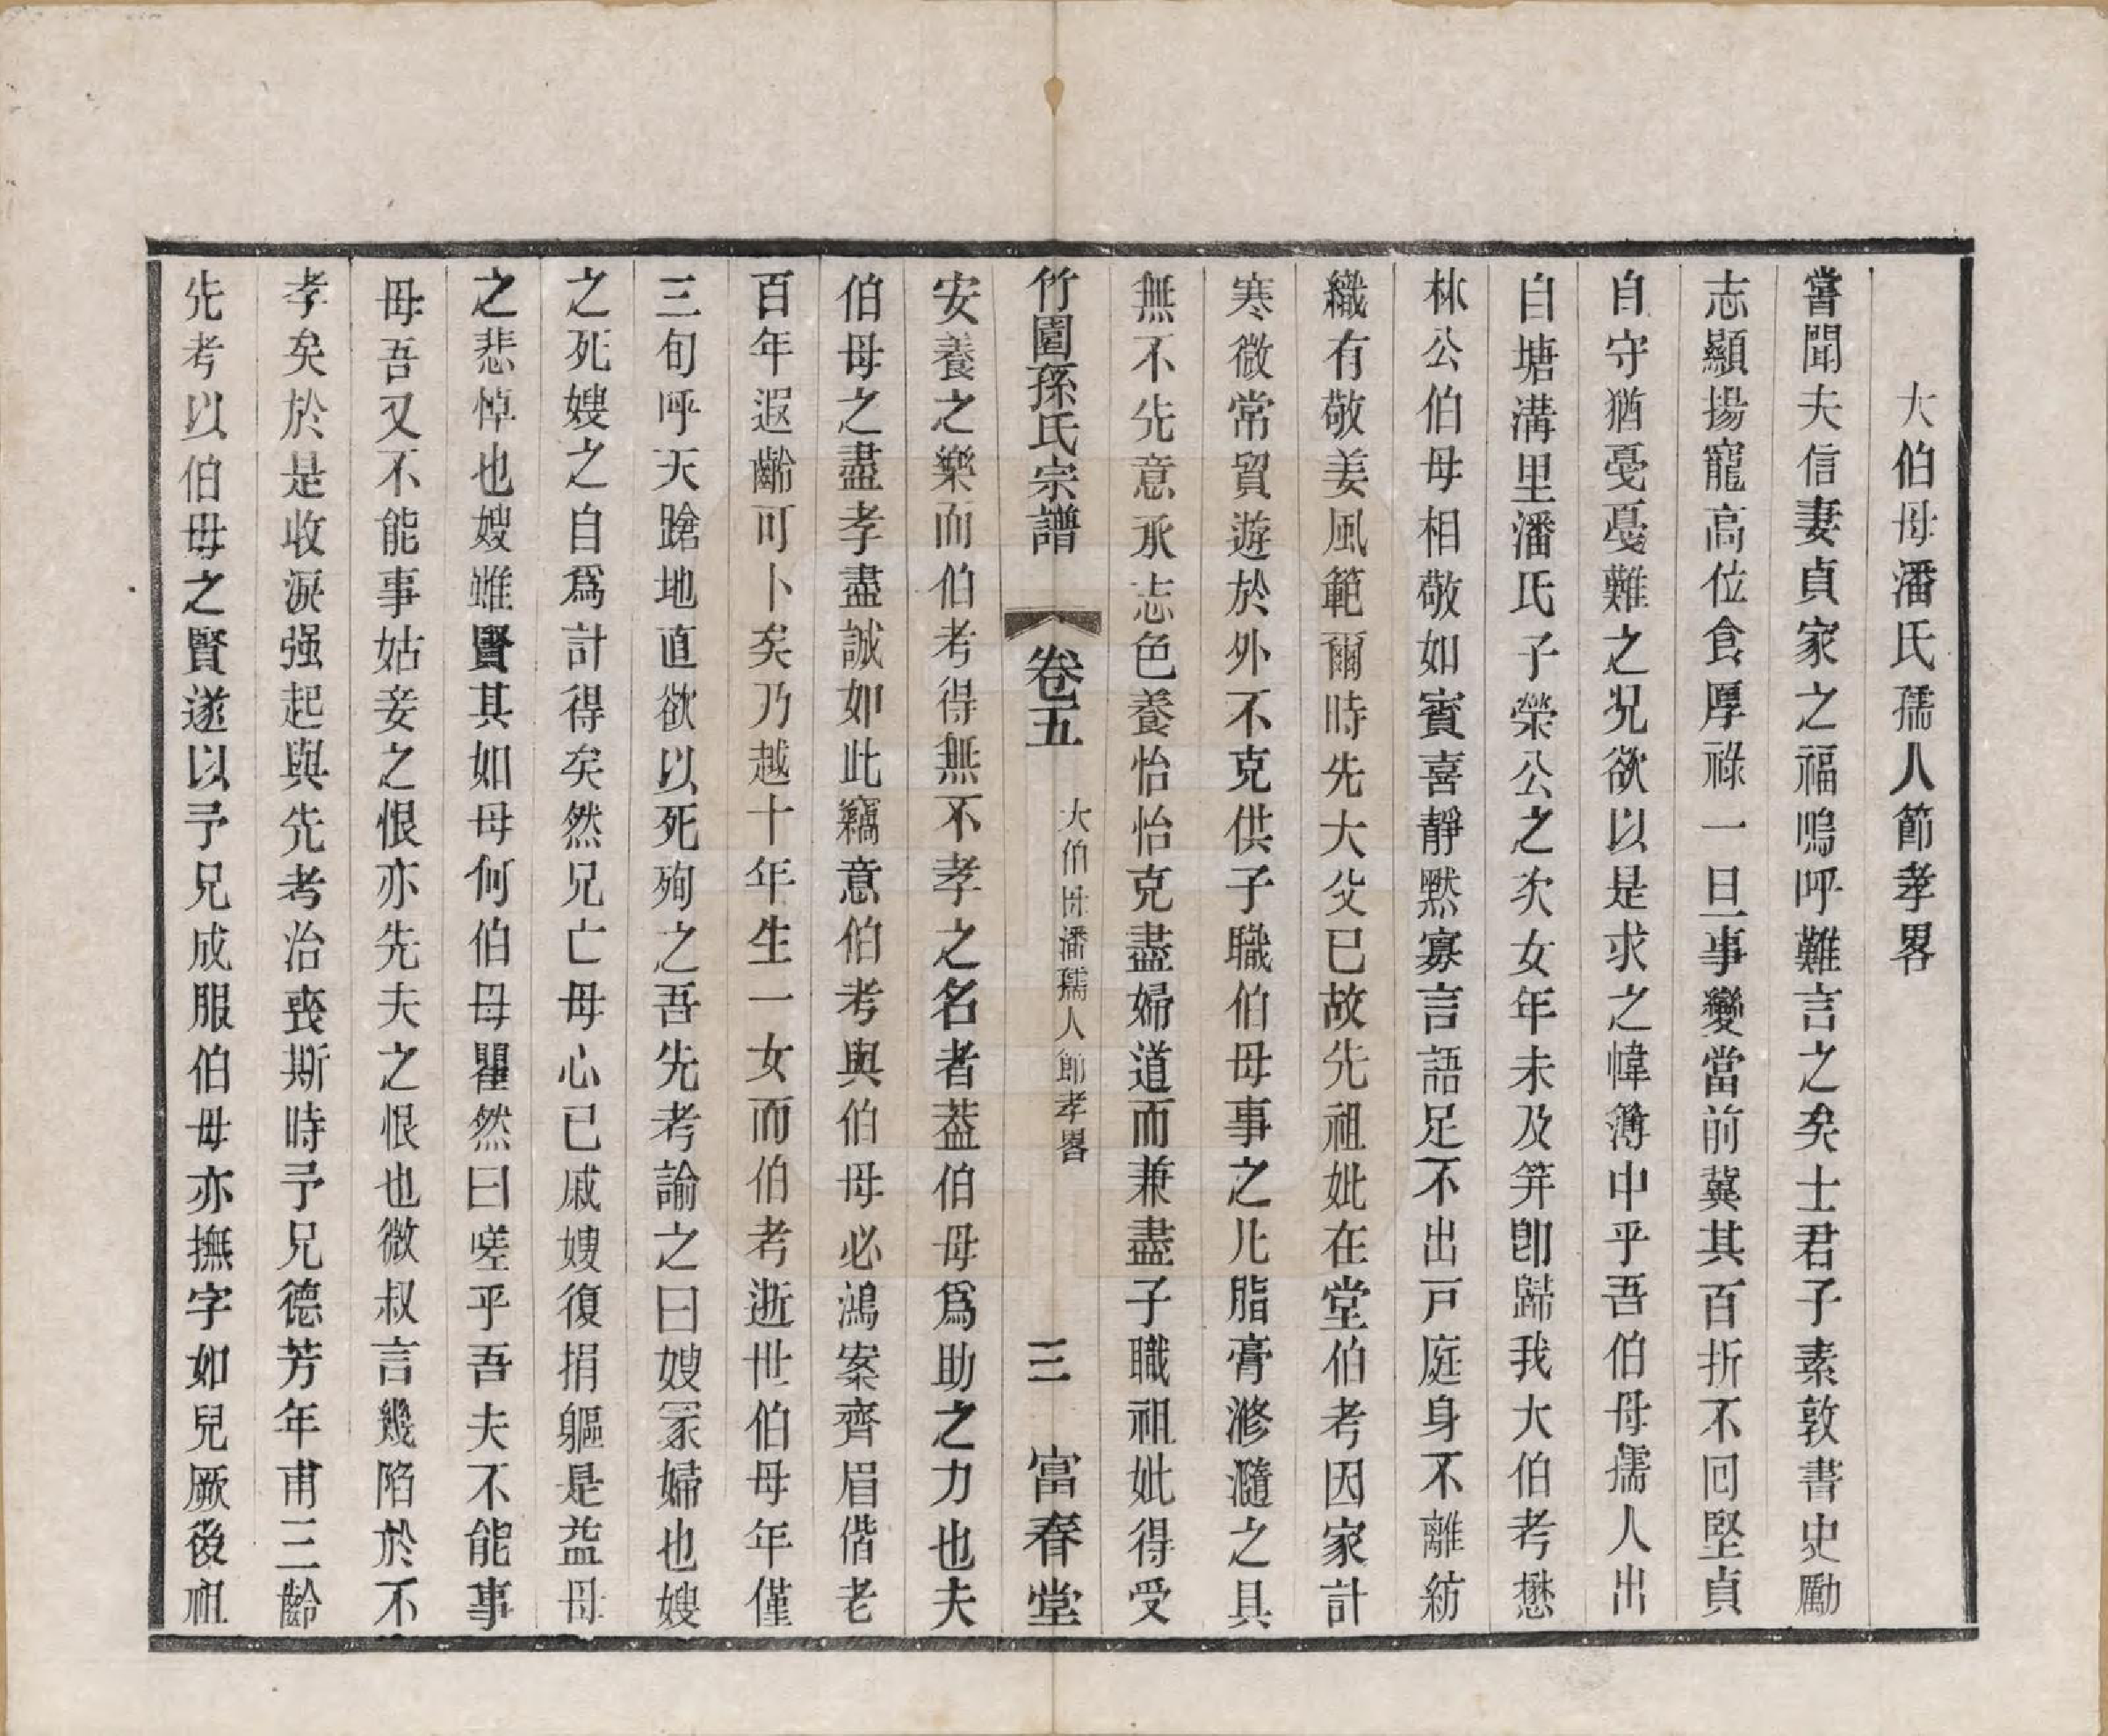 大伯母潘氏孺人節孝畧
嘗聞夫信妻貞家之福嗚呼難言之矣士君子素敦書史勵
志顯揚寵高位食厚祿一旦事變當前冀其百折不囘堅貞
自守猶戞戞難之况欲以是求之幃簿中乎吾伯母孺人出
自塘溝里潘氏子榮公之次女年未及笄卽歸我大伯考懋
林公伯母相敬如賓喜靜默寡言語足不出戸庭身不離紡
織有敬姜風範爾時先大父已故先祖妣在堂伯考因家計
寒微常貿遊於外不克供子職伯母事之凡脂膏滫瀡之具
無不先意承志色養怡怡克盡婦道而兼盡子職祖妣得受
竹園孫氏宗譜 卷五 大伯母潘孺人節孝畧 三 富春堂
安養之樂而伯考得無不孝之名者葢伯母爲助之力也夫
伯母之盡孝盡誠如此竊意伯考與伯母必鴻案齊眉偕老
百年遐齡可卜矣乃越十年生一女而伯考逝世伯母年僅
三旬呼天蹌地直欲以死殉之吾先考諭之曰嫂冢婦也嫂
之死嫂之自爲計得矣然兄亡母心已戚嫂復捐軀是益母
之悲悼也嫂雖賢其如母何伯母瞿然曰嗟乎吾夫不能事
母吾又不能事姑妾之恨亦先夫之恨也微叔言幾陷於不
孝矣於是收淚强起與先考治喪斯時予兄德芳年甫三齡
先考以伯母之賢遂以予兄成服伯母亦撫字如兒厥後祖